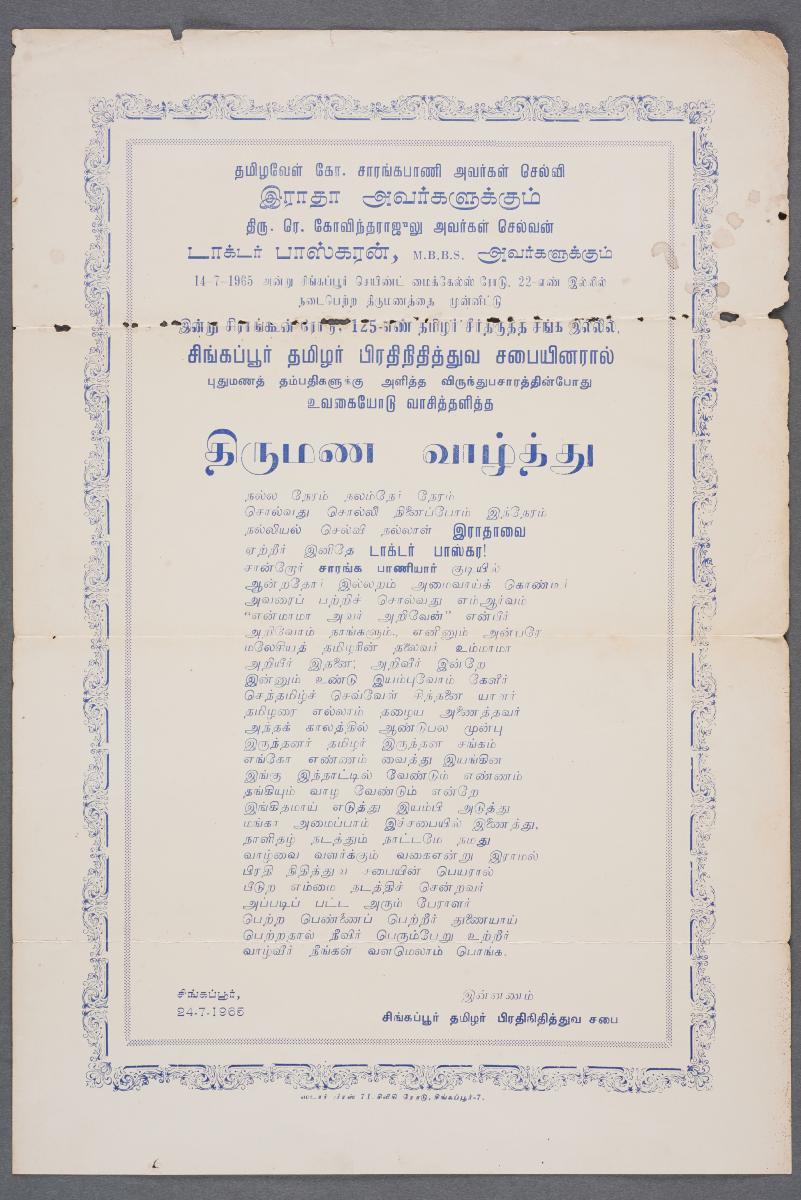 தமிழவேள் கோ. சாரங்கபாணி அவர்கள் செல்வி
இராதா அவர்களுக்கும்
திரு. ரெ. கோவிந்தராஜுலு அவர்கள் செல்வன்
டாக்டர் பாஸ்கரன், M.B.B.S. அவர்களுக்கும்
14-7-1965 அன்று சிங்கப்பூர் செயிண்ட் மைக்கேல்ஸ் ரோடு, 22-எண் இல்லில்
நடைபெற்ற திருமணத்தை முன்னிட்டு
இன்று சிராங்கூன் ரோடு, 125-எண் தமிழர் சீர்திருத்த சங்க இல்லில்,
சிங்கப்பூர் தமிழர் பிரதிநிதித்துவ சபையினரால்
புதுமணத் தம்பதிகளுக்கு அளித்த விருந்துபசாரத்தின்போது
உவகையோடு வாசித்தளித்த
திருமண வாழ்த்து
நல்ல நேரம் நலம்நேர் நேரம்
சொல்வது சொல்லி நினைப்போம் இந்நேரம்
நல்லியல் செல்வி நல்லாள் இராதாவை
ஏற்றீர் இனிதே டாக்டர் பாஸ்கர!
சான்றோர் சாரங்க பாணியார் குடியில்
ஆன்றதோர் இல்லறம் அமைவாய்க் கொண்டீர்
அவரைப் பற்றிச் சொல்வது எம்ஆர்வம்
“என்மாமா அவர் அறிவேன்” என்பீர்
அறிவோம் நாங்களும், எனினும் அன்பரே
மலேசியத் தமிழரின் தலைவர் உம்மாமா
அறியீர் இதனை; அறிவீர் இன்றே
இன்னும் உண்டு இயம்புவோம் கேளீர்
செந்தமிழ்ச் செவ்வேள் சிந்தனை யாளர்
தமிழரை எல்லாம் தழைய அணைத்தவர்
அந்தக் காலத்தில் ஆண்டுபல முன்பு
இருந்தனர் தமிழர் இருந்தன சங்கம்
எங்கோ எண்ணம் வைத்து இயங்கின
இங்கு இந்நாட்டில் வேண்டும் எண்ணம்
தங்கியும் வாழ வேண்டும் என்றே
இங்கிதமாய் எடுத்து இயம்பி அடுத்து
மங்கா அமைப்பாம் இச்சபையில் இணைத்து,
நாளிதழ் நடத்தும் நாட்டமே நமது
வாழ்வை வளர்க்கும் வகைஎன்று இராமல்
பிரதி நிதித்துவ சபையின் பெயரால்
பீடுற எம்மை நடத்திச் சென்றவர்
அப்படிப் பட்ட அரும் பேராளர்
பெற்ற பெண்ணைப் பெற்றீர் துணையாய்
பெற்றதால் நீவிர் பெரும்பேறு உற்றீர்
வாழ்வீர் நீங்கள் வளமெலாம் பொங்க.
சிங்கப்பூர்,
24-7-1965
இன்னணம்
சிங்கப்பூர் தமிழர் பிரதிநிதித்துவ சபை
ஸ்டார் பிரஸ் 71, கிளைவ் ரோடு, சிங்கப்பூர்-7.